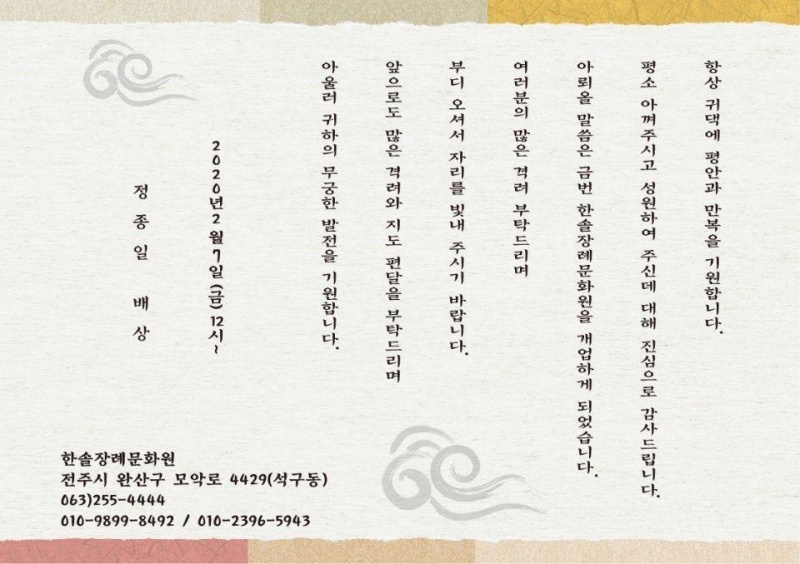 항상 귀댁에 평안과 만복을 기원합니다.
평소 아껴주시고 성원하여 주신데 대해 진심으로 감사드립니다.
아뢰올 말씀은 금번 한솔장례문화원을 개업하게 되었습니다.
여러분의 많은 격려 부탁드리며
부디 오셔서 자리를 빛내 주시기 바랍니다.
앞으로도 많은 격려와 지도 편달을 부탁드리며
아울러 귀하의 무궁한 발전을 기원합니다.
2020년 2월 7일 (금) 12시~
정종일 배상
한솔장례문화원
전주시 완산구 모악로 4429(석구동)
063)255-4444
010-9899-8492 / 010-2396-5943